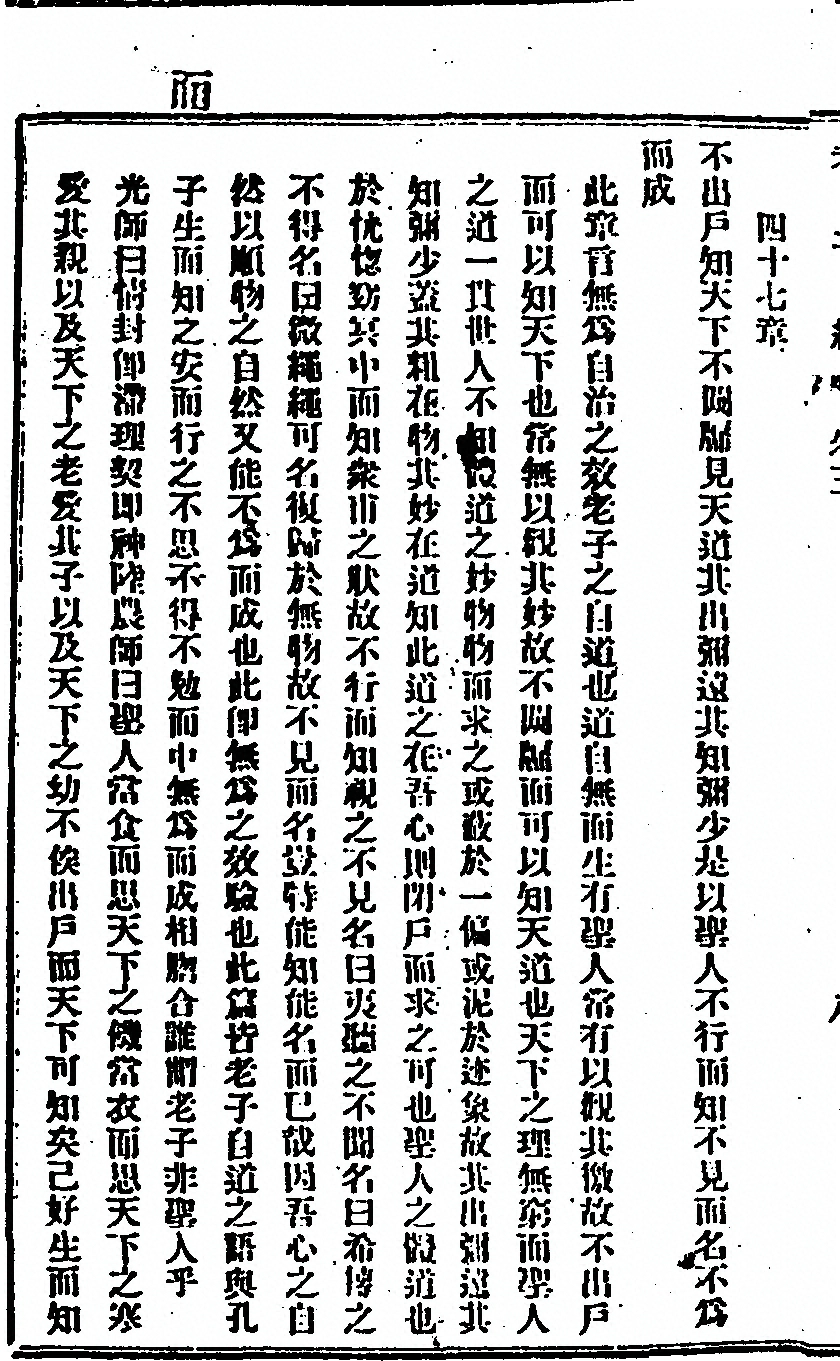 四十七章
不出戶知天下不闚牖見天道其出彌遠其知彌少是以聖人不行而知不見而名不爲
而成
此章言無爲自治之效老子之自道也道自無而生有聖人常有以觀其徼故不出戶
而可以知天下也常無以觀其妙故不闚牖而可以知天道也天下之理無窮而聖人
之道一貫世人不知體道之妙物物而求之或蔽於一偏或泥於迹象故其出彌遠其
知彌少蓋其粗在物其妙在道知此道之在吾心則閉戶而求之可也聖人之體道也
於恍惚窈冥中而知衆甫之狀故不行而知視之不見名曰夷聽之不聞名曰希摶之
不得名曰微繩繩可名復歸於無物故不見而名豈特能知能名而已哉因吾心之自
然以順物之自然又能不爲而成也此卽無爲之效驗也此篇皆老子自道之語與孔
子生而知之安而行之不思不得不勉而中無爲而成相脗合誰謂老子非聖人乎
光師曰情封卽滯理契卽神陸農師曰聖人當食而思天下之饑當衣而思天下之寒
愛其親以及天下之老愛其子以及天下之幼不俟出戶而天下可知矣己好生而知
而